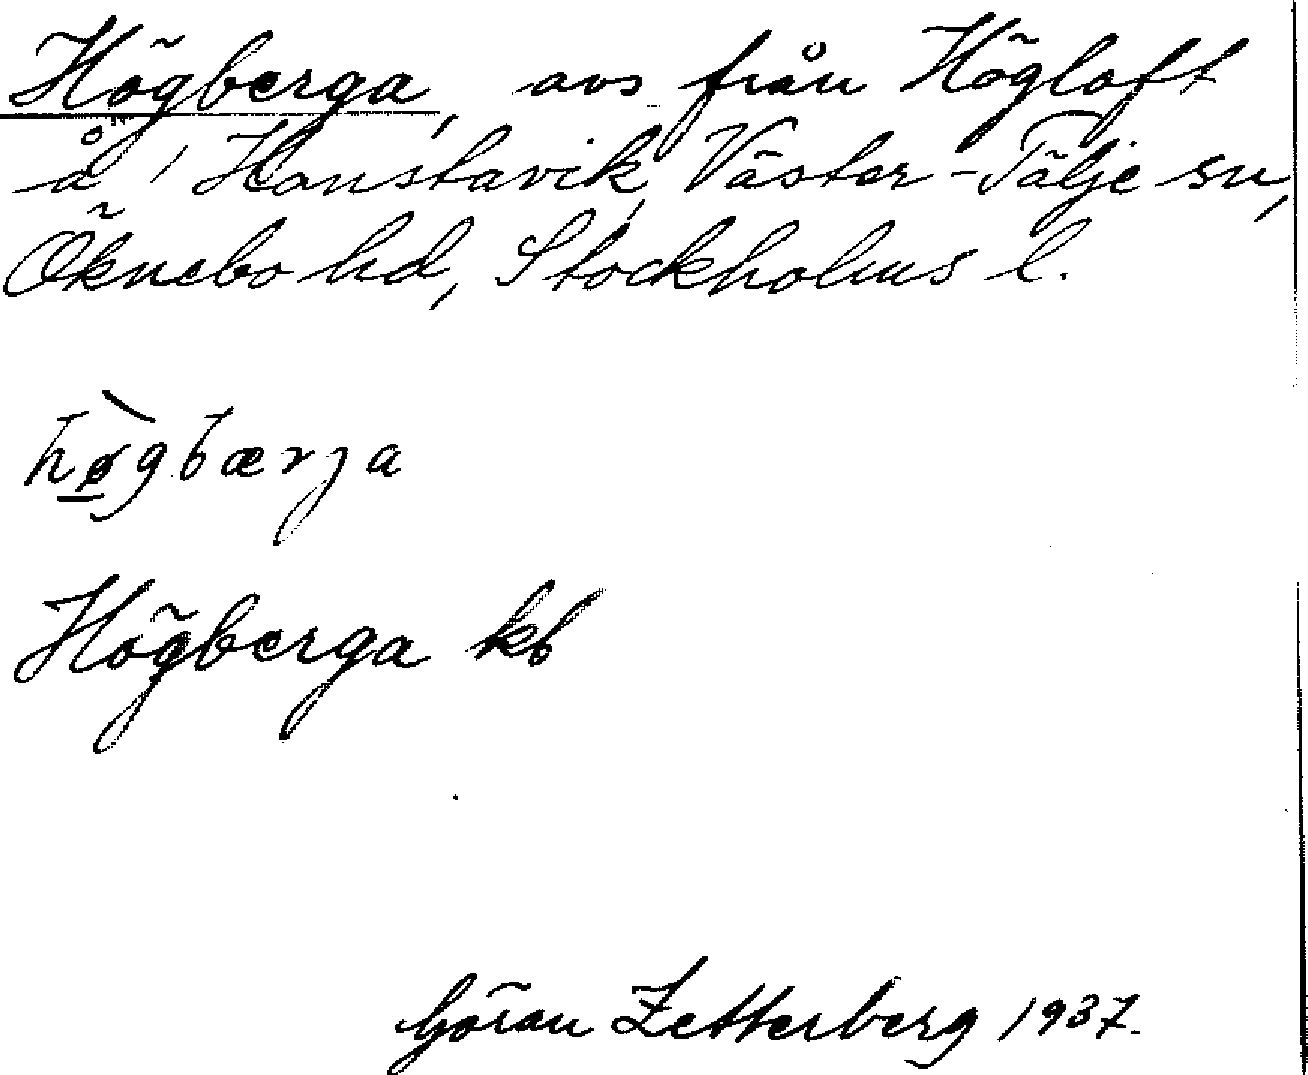 Högberga, avs från Högloft
å Hanstavik, Väster-Tälje sn,
Öknebo hd, Stockholms l.
hø̀gbærja
Högberga kb
Göran Zetterberg 1937.